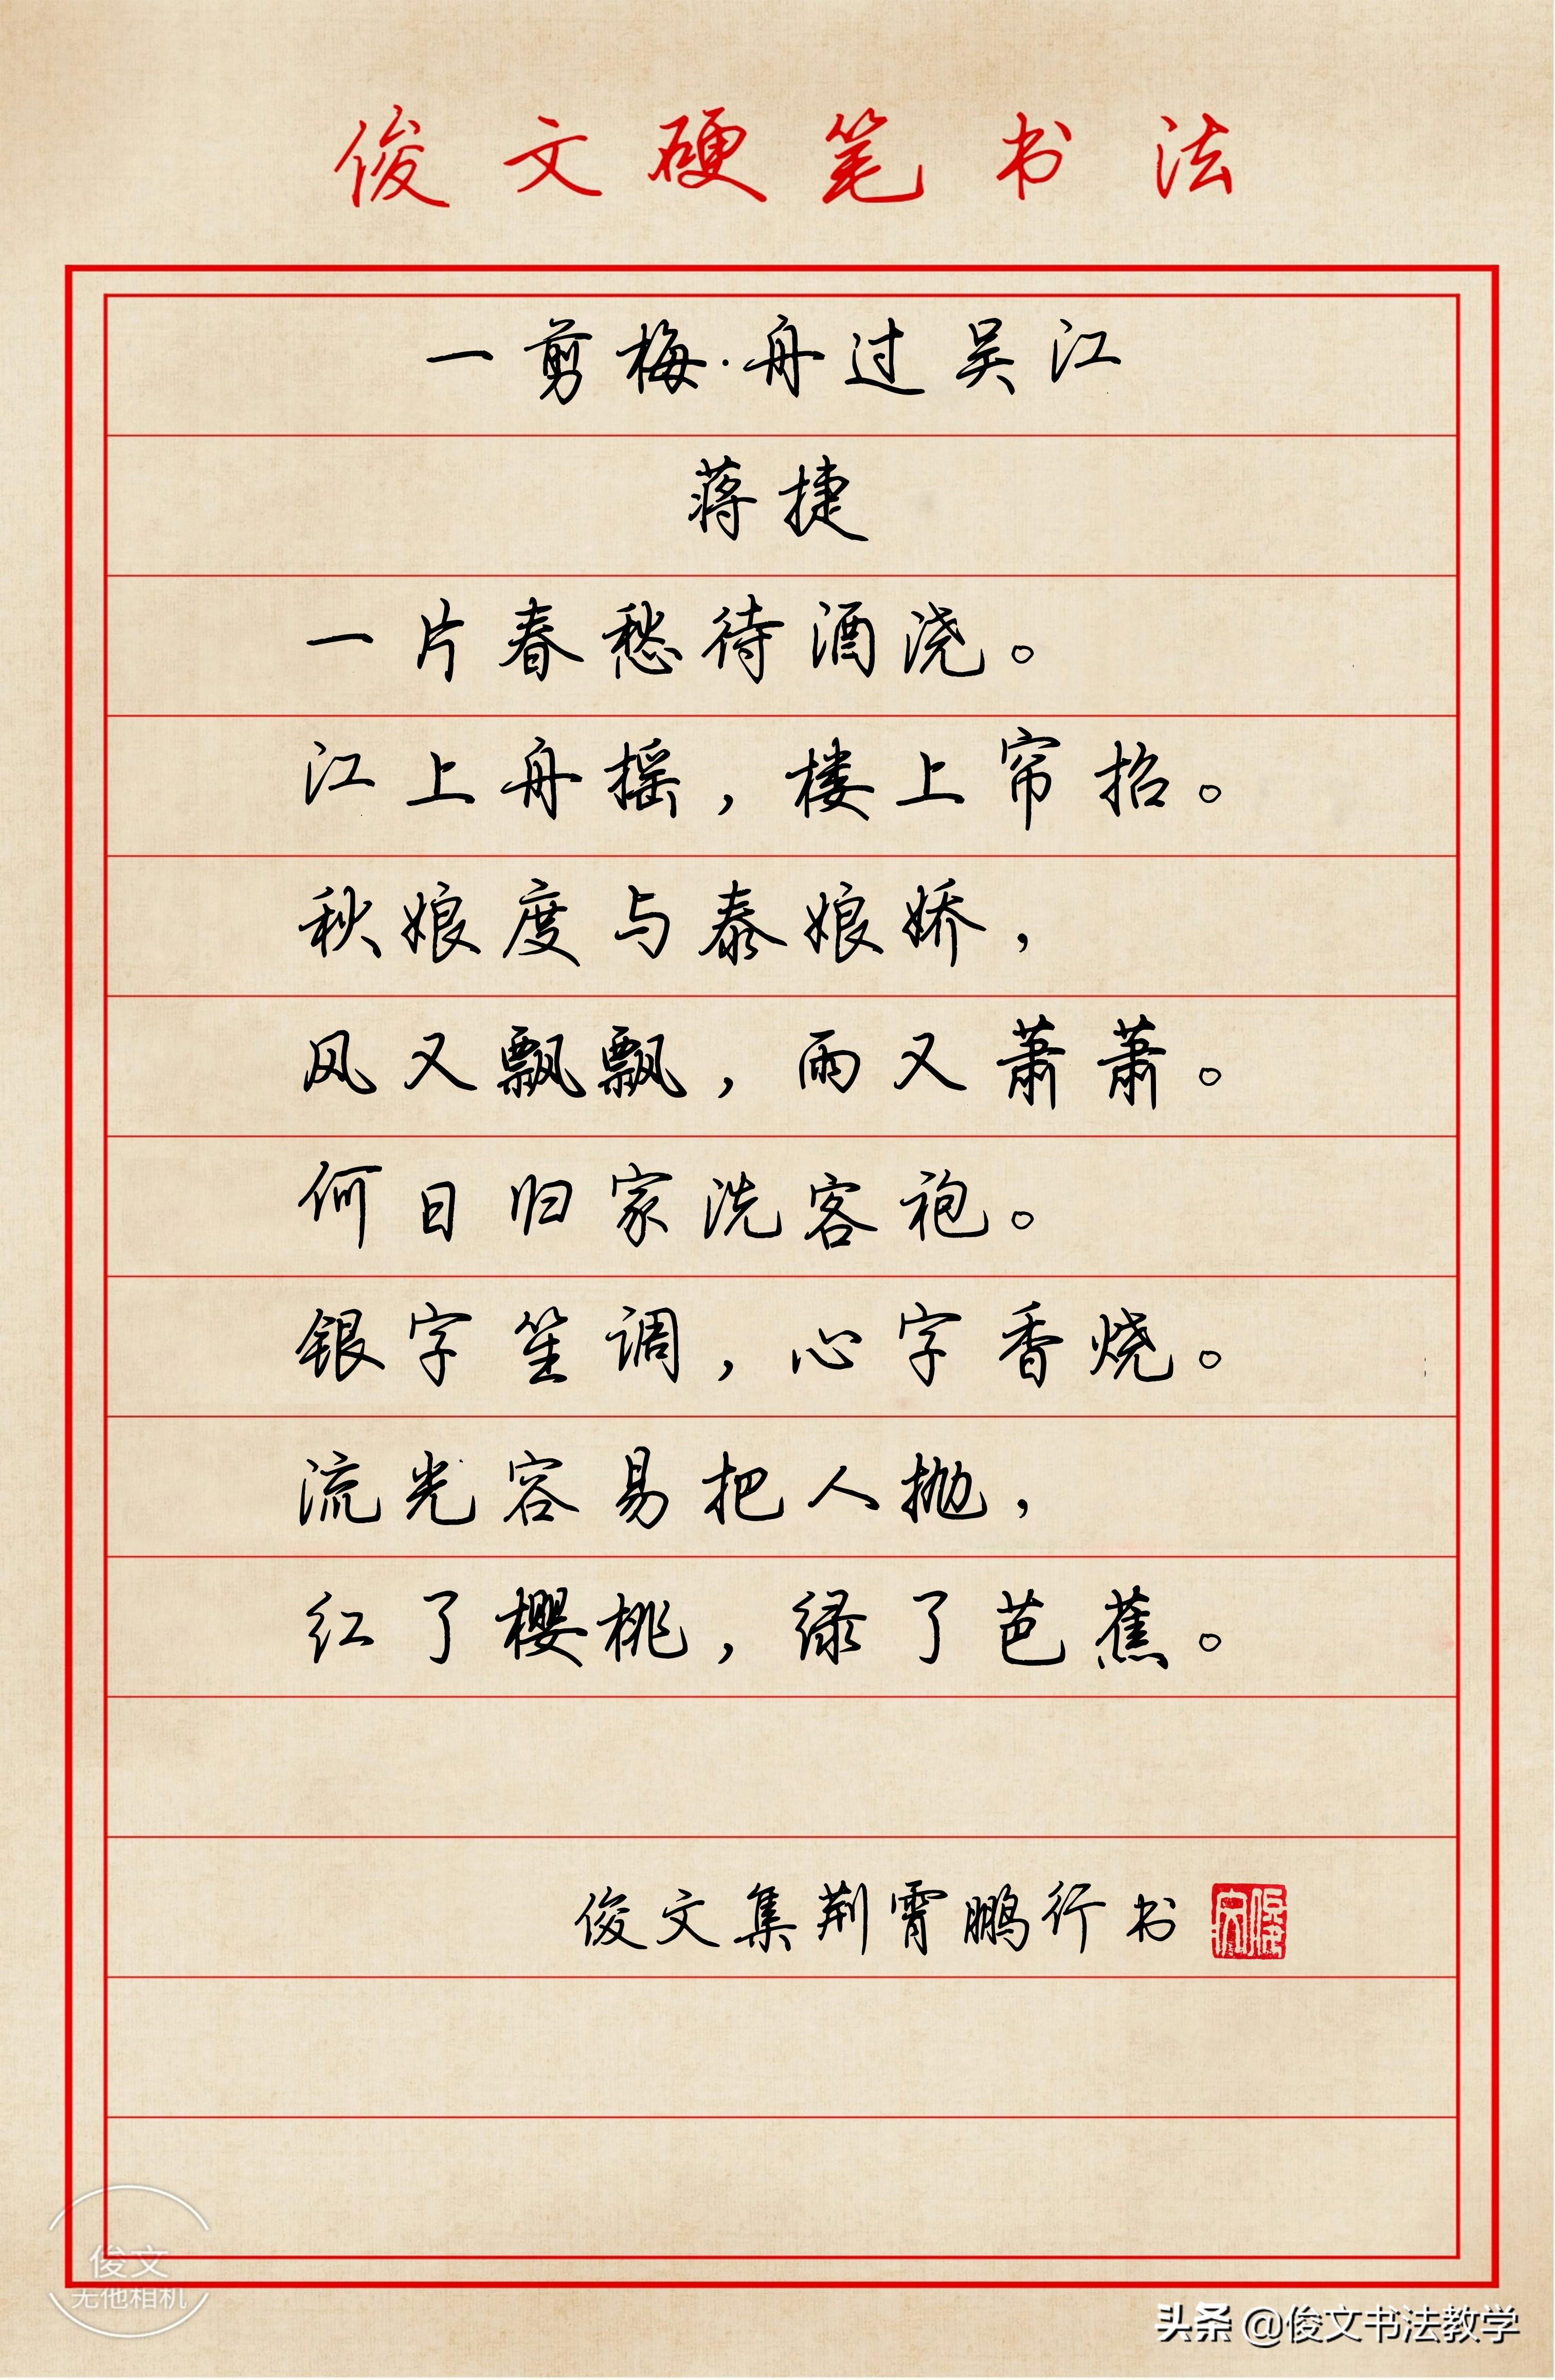 俊文硬笔书法
一剪梅·舟过吴江
蒋捷
一片春愁待酒浇。
江上舟摇，楼上帘招。
秋娘度与泰娘娇，
风又飘飘，雨又萧萧。
何日归家洗客袍。
银字笙调，心字香烧。
流光容易把人抛，
红了樱桃，绿了芭蕉。
俊文集荆霄鹏行书
俊文
俊文
无他相机
头条 @俊文书法教学